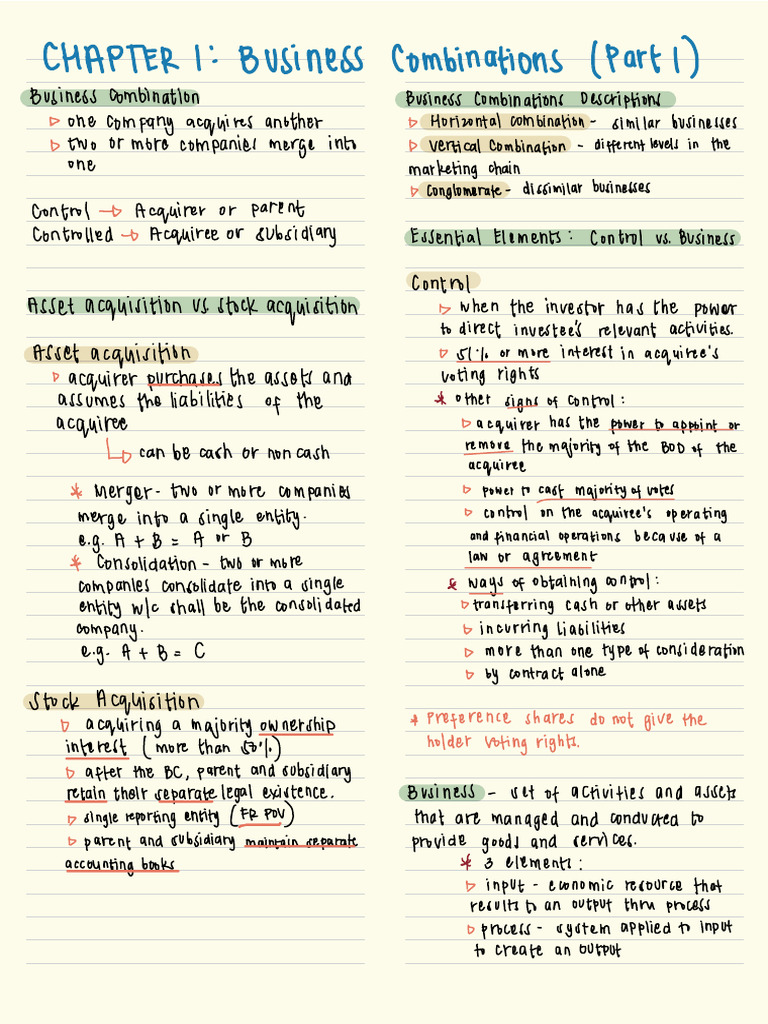 CHAPTER 1: Business Combinations (Part 1)
Business Combination
▷ one company acquires another
▷ two or more companies merge into
one
Control → Acquirer or parent
Controlled → Acquiree or subsidiary
Asset acquisition vs stock acquisition
Asset acquisition
▷ acquirer purchases the assets and
assumes the liabilities of the
acquiree
↳ can be cash or non cash
* Merger - two or more companies
merge into a single entity.
e.g. A + B = A or B
* Consolidation - two or more
companies consolidate into a single
entity w/c shall be the consolidated
company.
e.g. A + B = C
Stock Acquisition
▷ acquiring a majority ownership
interest (more than 50%)
▷ after the BC, parent and subsidiary
retain their separate legal existence.
▷ single reporting entity (FR POV)
▷ parent and subsidiary maintain separate
accounting books
Business Combinations Descriptions
▷ Horizontal combination - similar businesses
▷ Vertical Combination - different levels in the
marketing chain
▷ Conglomerate - dissimilar businesses
Essential Elements: Control vs. Business
Control
▷ when the investor has the power
to direct investee's relevant activities.
▷ 51% or more interest in acquiree's
voting rights
* other signs of control:
▷ acquirer has the power to appoint or
remove the majority of the BOD of the
acquiree
▷ power to cast majority of votes
▷ control on the acquiree's operating
and financial operations because of a
law or agreement
* ways of obtaining control:
▷ transferring cash or other assets
▷ incurring liabilities
▷ more than one type of consideration
▷ by contract alone
* Preference shares do not give the
holder voting rights.
Business - set of activities and assets
that are managed and conducted to
provide goods and services.
* 3 elements:
▷ input - economic resource that
results to an output thru process
▷ process - system applied to input
to create an output